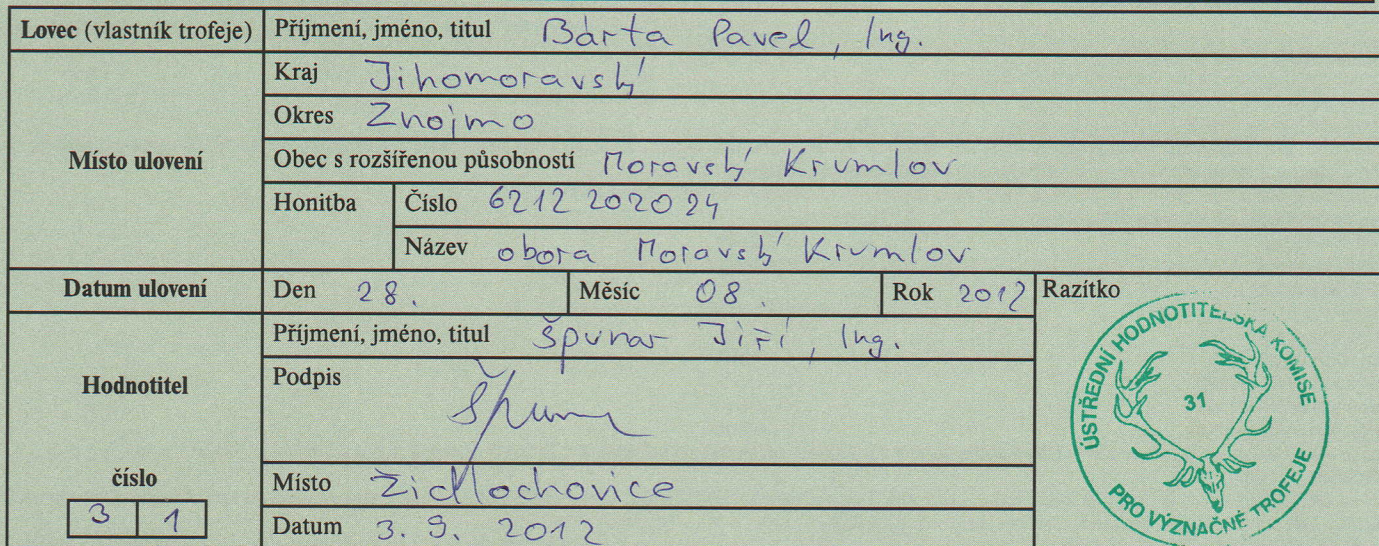 Lovec (vlastník trofeje) Příjmení, jméno, titul Bárta Pavel, Ing.
Místo ulovení
Kraj Jihomoravský
Okres Znojmo
Obec s rozšířenou působností Moravský Krumlov
Honitba Číslo 6212 2020 24
Název obora Moravský Krumlov
Datum ulovení Den 28. Měsíc 08. Rok 2012 Razítko
Hodnotitel
Příjmení, jméno, titul Špunar Jiří, Ing.
Podpis
číslo
3 1
Místo Židlochovice
Datum 3. 9. 2012
ÚSTŘEDNÍ HODNOTITELSKÁ KOMISE
31
PRO VÝZNAČNÉ TROFEJE